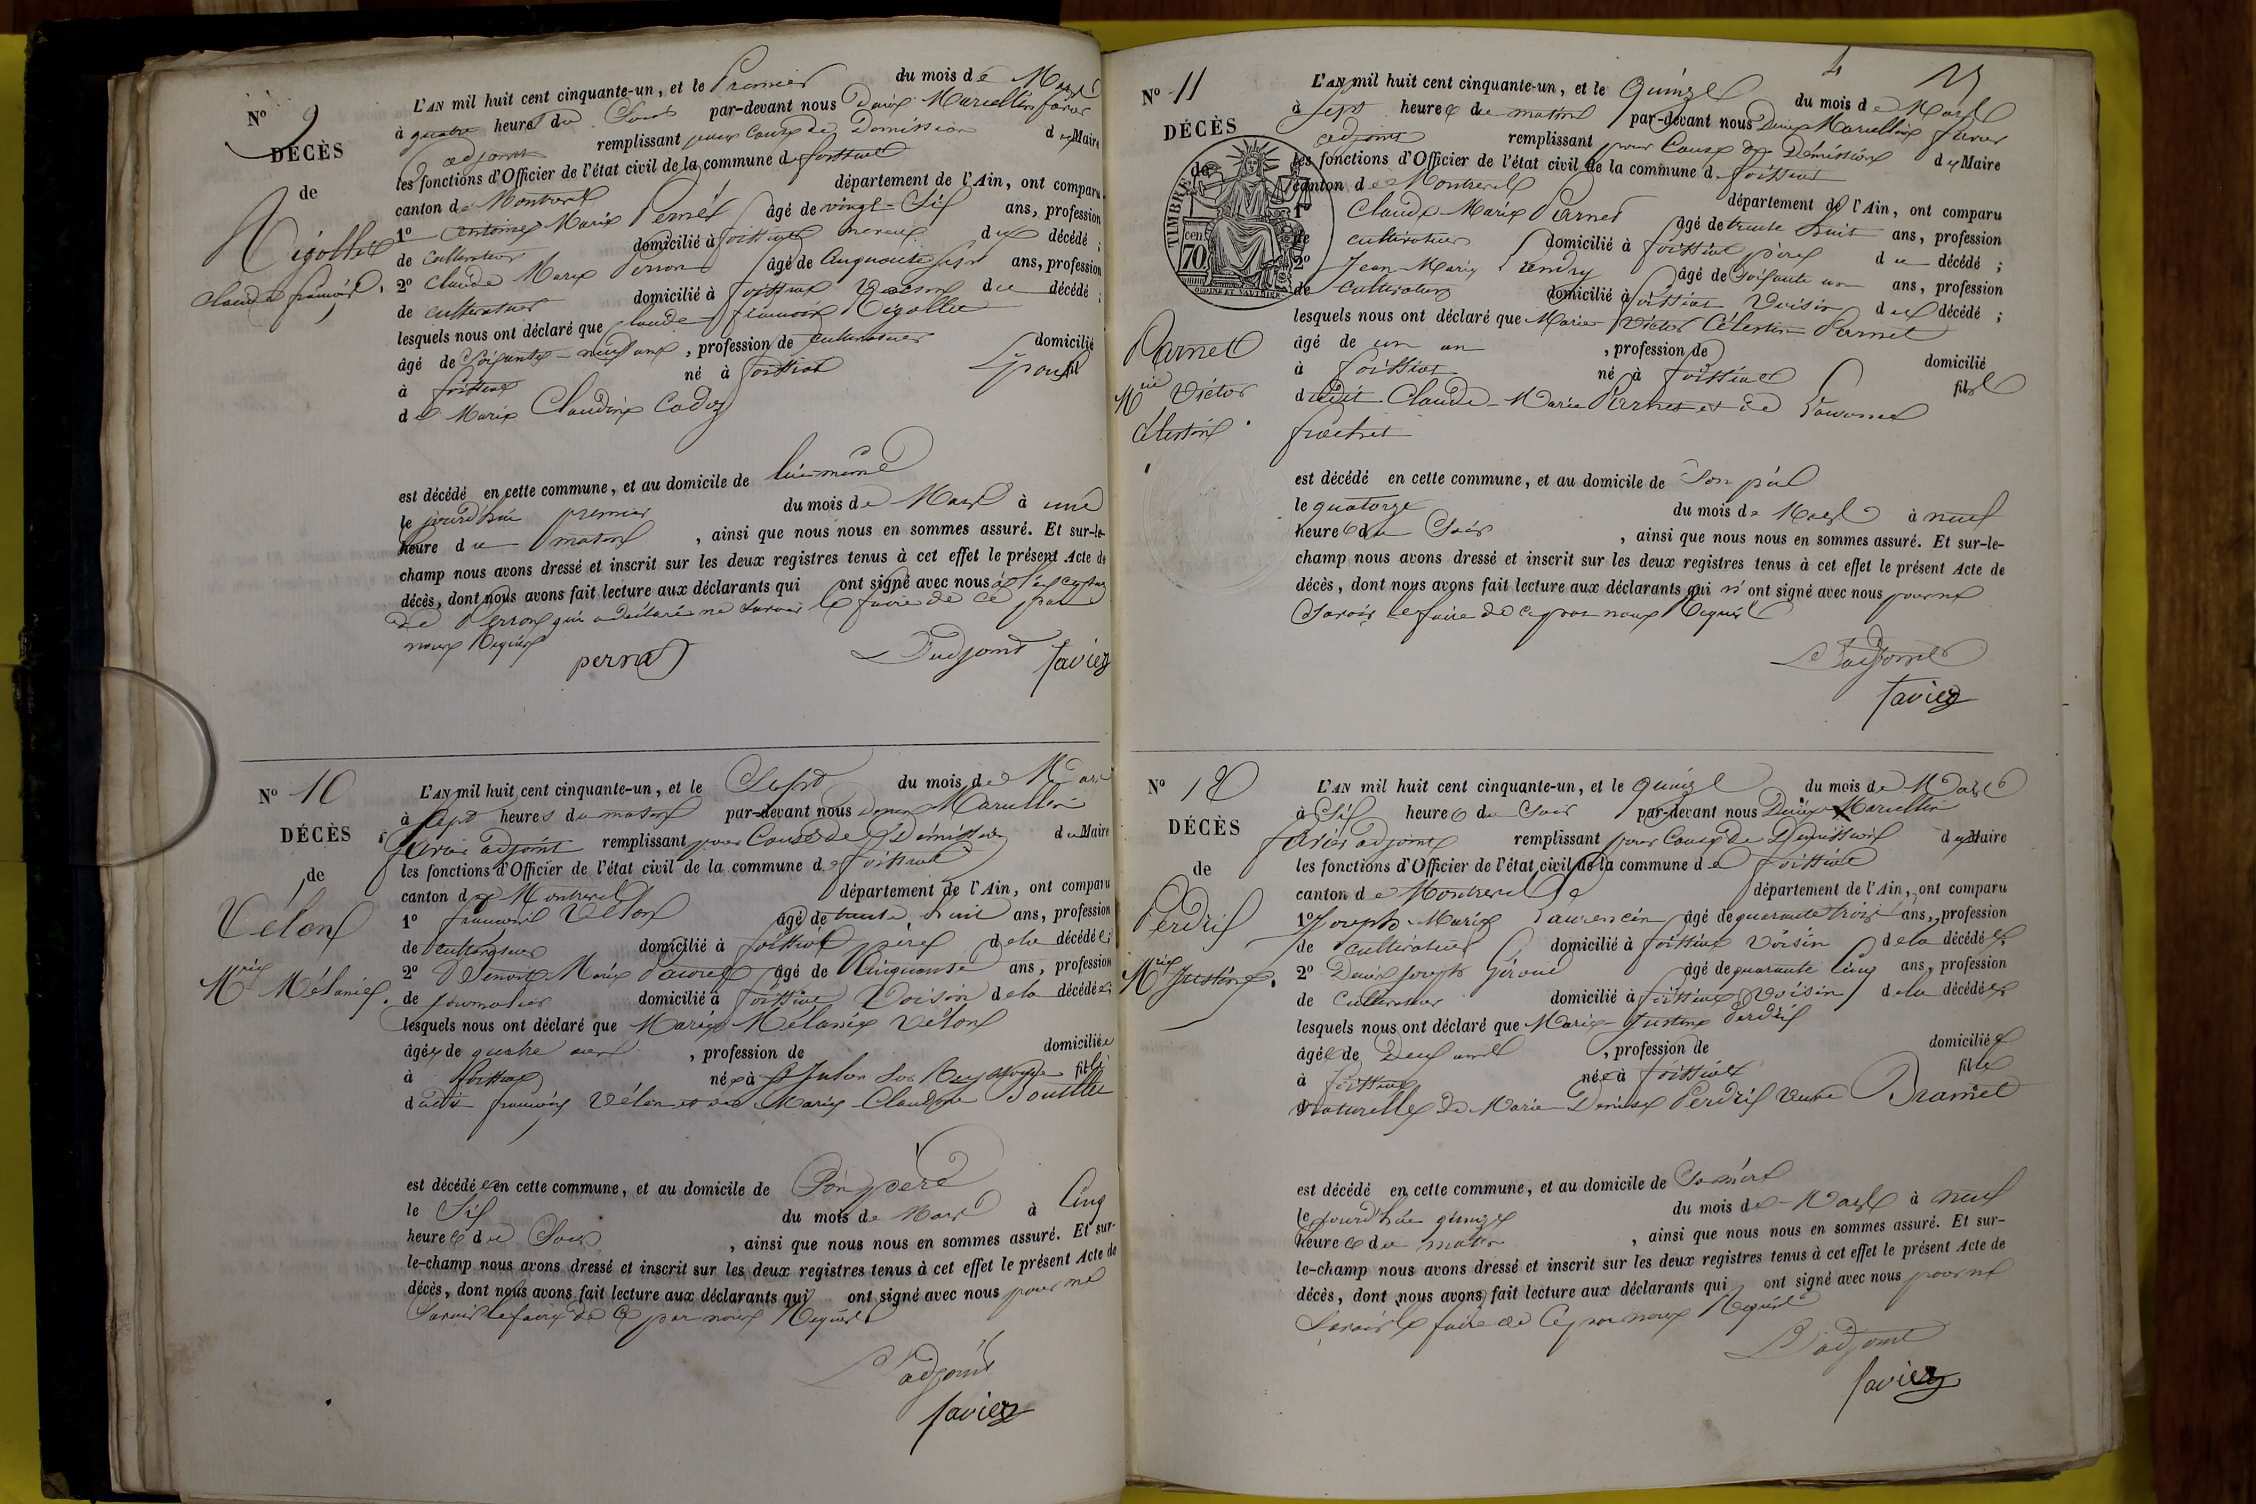 N° 9
DÉCÈS
de
Rigollet
Claude françois.
L'AN mil huit cent cinquante-un, et le Premier du mois de Mars
à quatre heures du Soir par-devant nous Denis Marcellin favier
adjoint remplissant pour cause de Démission du Maire
les fonctions d'Officier de l'état civil de la commune de foissiat
canton de Montrevel département de l'Ain, ont comparu
1° antoine Marie Pernet âgé de vingt-Six ans, profession
de cultivateur domicilié à foissiat neveu du décédé ;
2° Claude Marie Perron âgé de Cinquante sept ans, profession
de cultivateur domicilié à foissiat Voisin du décédé ;
lesquels nous ont déclaré que Claude françois Rigollet
âgé de Soixante-neuf ans, profession de cultivateur domicilié
à foissiat né à foissiat Epoux fil
de Marie Claudine Cadoz
est décédé en cette commune, et au domicile de lui-même
le jourd'hui premier du mois de Mars à une
heure du matin, ainsi que nous nous en sommes assuré. Et sur-le-
champ nous avons dressé et inscrit sur les deux registres tenus à cet effet le présent Acte de
décès, dont nous avons fait lecture aux déclarants qui ont signé avec nous à l'exception
de Perron qui a déclaré ne savoir le faire de ce par
nous Requis
pernet L'adjoint favier
N° 10
DÉCÈS
de
Vélon
Mrie Mélanie.
L'AN mil huit cent cinquante-un, et le Sept du mois de Mars
à Sept heures du matin par-devant nous Denis Marcellin
favier adjoint remplissant pour Cause de Démission du Maire
les fonctions d'Officier de l'état civil de la commune de foissiat
canton de Montrevel département de l'Ain, ont comparu
1° françois Vélon âgé de trente huit ans, profession
de cultivateur domicilié à foissiat père de la décédée ;
2° Benoit Marie âgé de Cinquante ans, profession
de journalier domicilié à foissiat Voisin de la décédée ;
lesquels nous ont déclaré que Marie Mélanie Vélon
âgée de quatre ans, profession de domiciliée
à foissiat née à St Julien Sur Reyssouze fille
dudit françois Vélon et de Marie Claudine Bouillet
est décédée en cette commune, et au domicile de Son père
le Six du mois de Mars à Cinq
heures du Soir, ainsi que nous nous en sommes assuré. Et sur-
le-champ nous avons dressé et inscrit sur les deux registres tenus à cet effet le présent Acte de
décès, dont nous avons fait lecture aux déclarants qui ont signé avec nous pour ne
Savoir le faire de Ce par nous Requis
L'adjoint
favier
4 25
N° 11
DÉCÈS
de
TIMBRE
cen 70
Pernet
Mrie Victor
Célestin.
L'AN mil huit cent cinquante-un, et le Quinze du mois de Mars
à Sept heures du matin par-devant nous Denis Marcellin favier
adjoint remplissant pour Cause de Démission du Maire
les fonctions d'Officier de l'état civil de la commune de foissiat
canton de Montrevel département de l'Ain, ont comparu
1° Claude Marie Pernet âgé de trente huit ans, profession
de cultivateur domicilié à foissiat père du décédé ;
2° Jean Marie âgé de Soixante un ans, profession
de cultivateur domicilié à foissiat Voisin du décédé ;
lesquels nous ont déclaré que Marie Victor Célestin Pernet
âgé de un an, profession de domicilié
à foissiat né à foissiat fils
dudit Claude-Marie Pernet et de
est décédé en cette commune, et au domicile de Son père
le quatorze du mois de Mars à neuf
heures du Soir, ainsi que nous nous en sommes assuré. Et sur-le-
champ nous avons dressé et inscrit sur les deux registres tenus à cet effet le présent Acte de
décès, dont nous avons fait lecture aux déclarants qui n'ont signé avec nous pour ne
Savoir le faire de ce par nous Requis
L'adjoint
favier
N° 12
DÉCÈS
de
Perdrix
Mrie Justine.
L'AN mil huit cent cinquante-un, et le quinze du mois de Mars
à Six heures du Soir par-devant nous Denis Marcellin
favier adjoint remplissant pour Cause de Démission du Maire
les fonctions d'Officier de l'état civil de la commune de foissiat
canton de Montrevel département de l'Ain, ont comparu
1° Joseph Marie Laurencin âgé de quarante trois ans, profession
de cultivateur domicilié à foissiat Voisin de la décédée
2° Denis Joseph âgé de quarante Cinq ans, profession
de Cultivateur domicilié à foissiat Voisin de la décédée
lesquels nous ont déclaré que Marie-Justine Perdrix
âgée de Deux ans, profession de domiciliée
à foissiat née à foissiat fille
Naturelle de Marie Denise Perdrix Veuve Bramet
est décédé en cette commune, et au domicile de Sa mère
le jourd'hui quinze du mois de Mars à neuf
heures du matin, ainsi que nous nous en sommes assuré. Et sur-
le-champ nous avons dressé et inscrit sur les deux registres tenus à cet effet le présent Acte de
décès, dont nous avons fait lecture aux déclarants qui ont signé avec nous pour ne
Savoir le faire de Ce par nous Requis
L'adjoint
favier